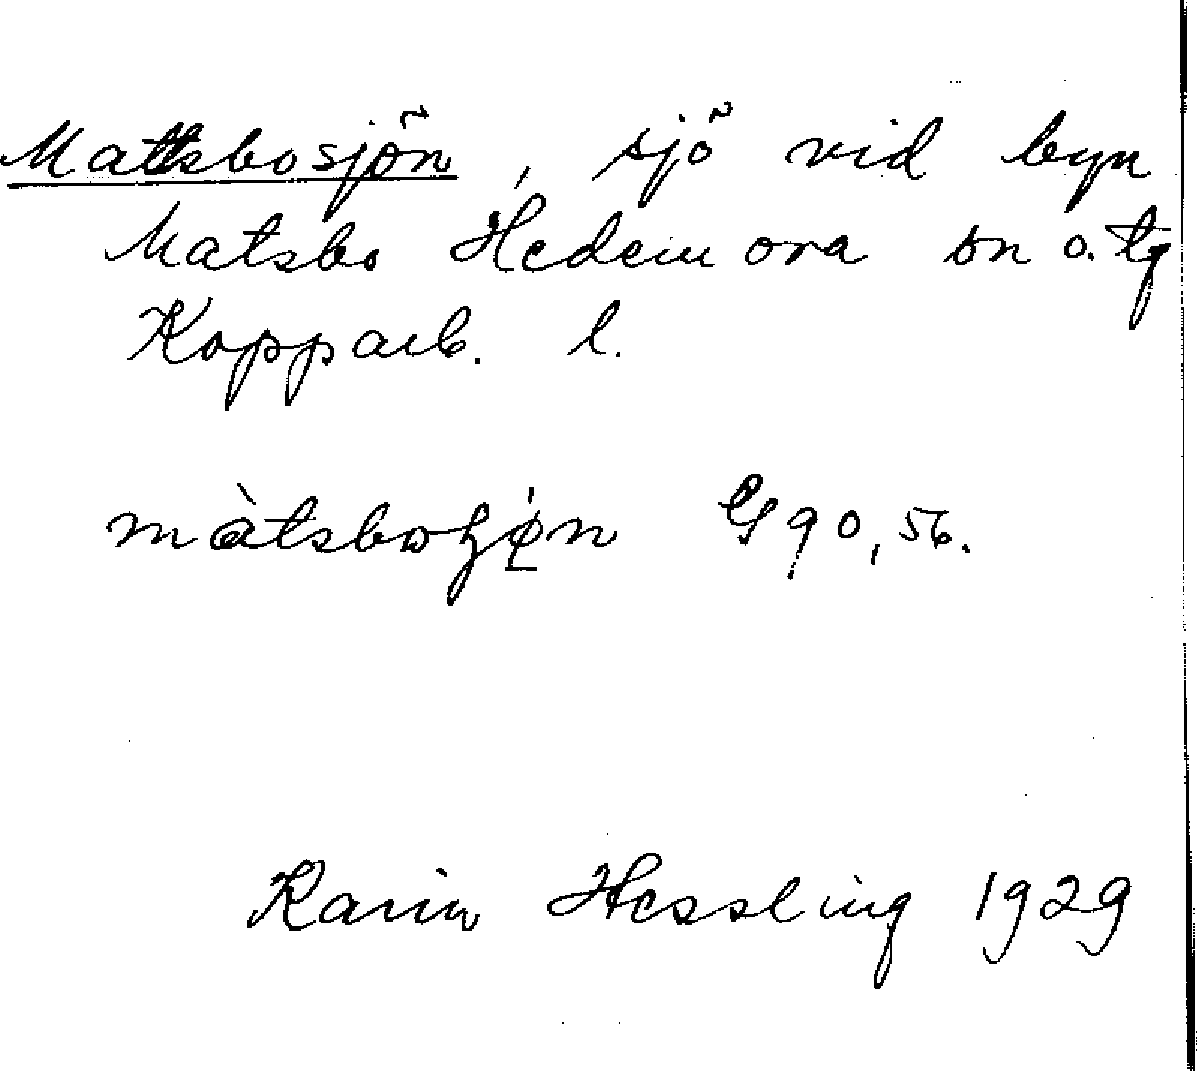 Mattsbosjön, sjö vid byn
Matsbo Hedemora sn o. tg
Kopparb. l.
G 90, 56.
Karin Hessling 1929